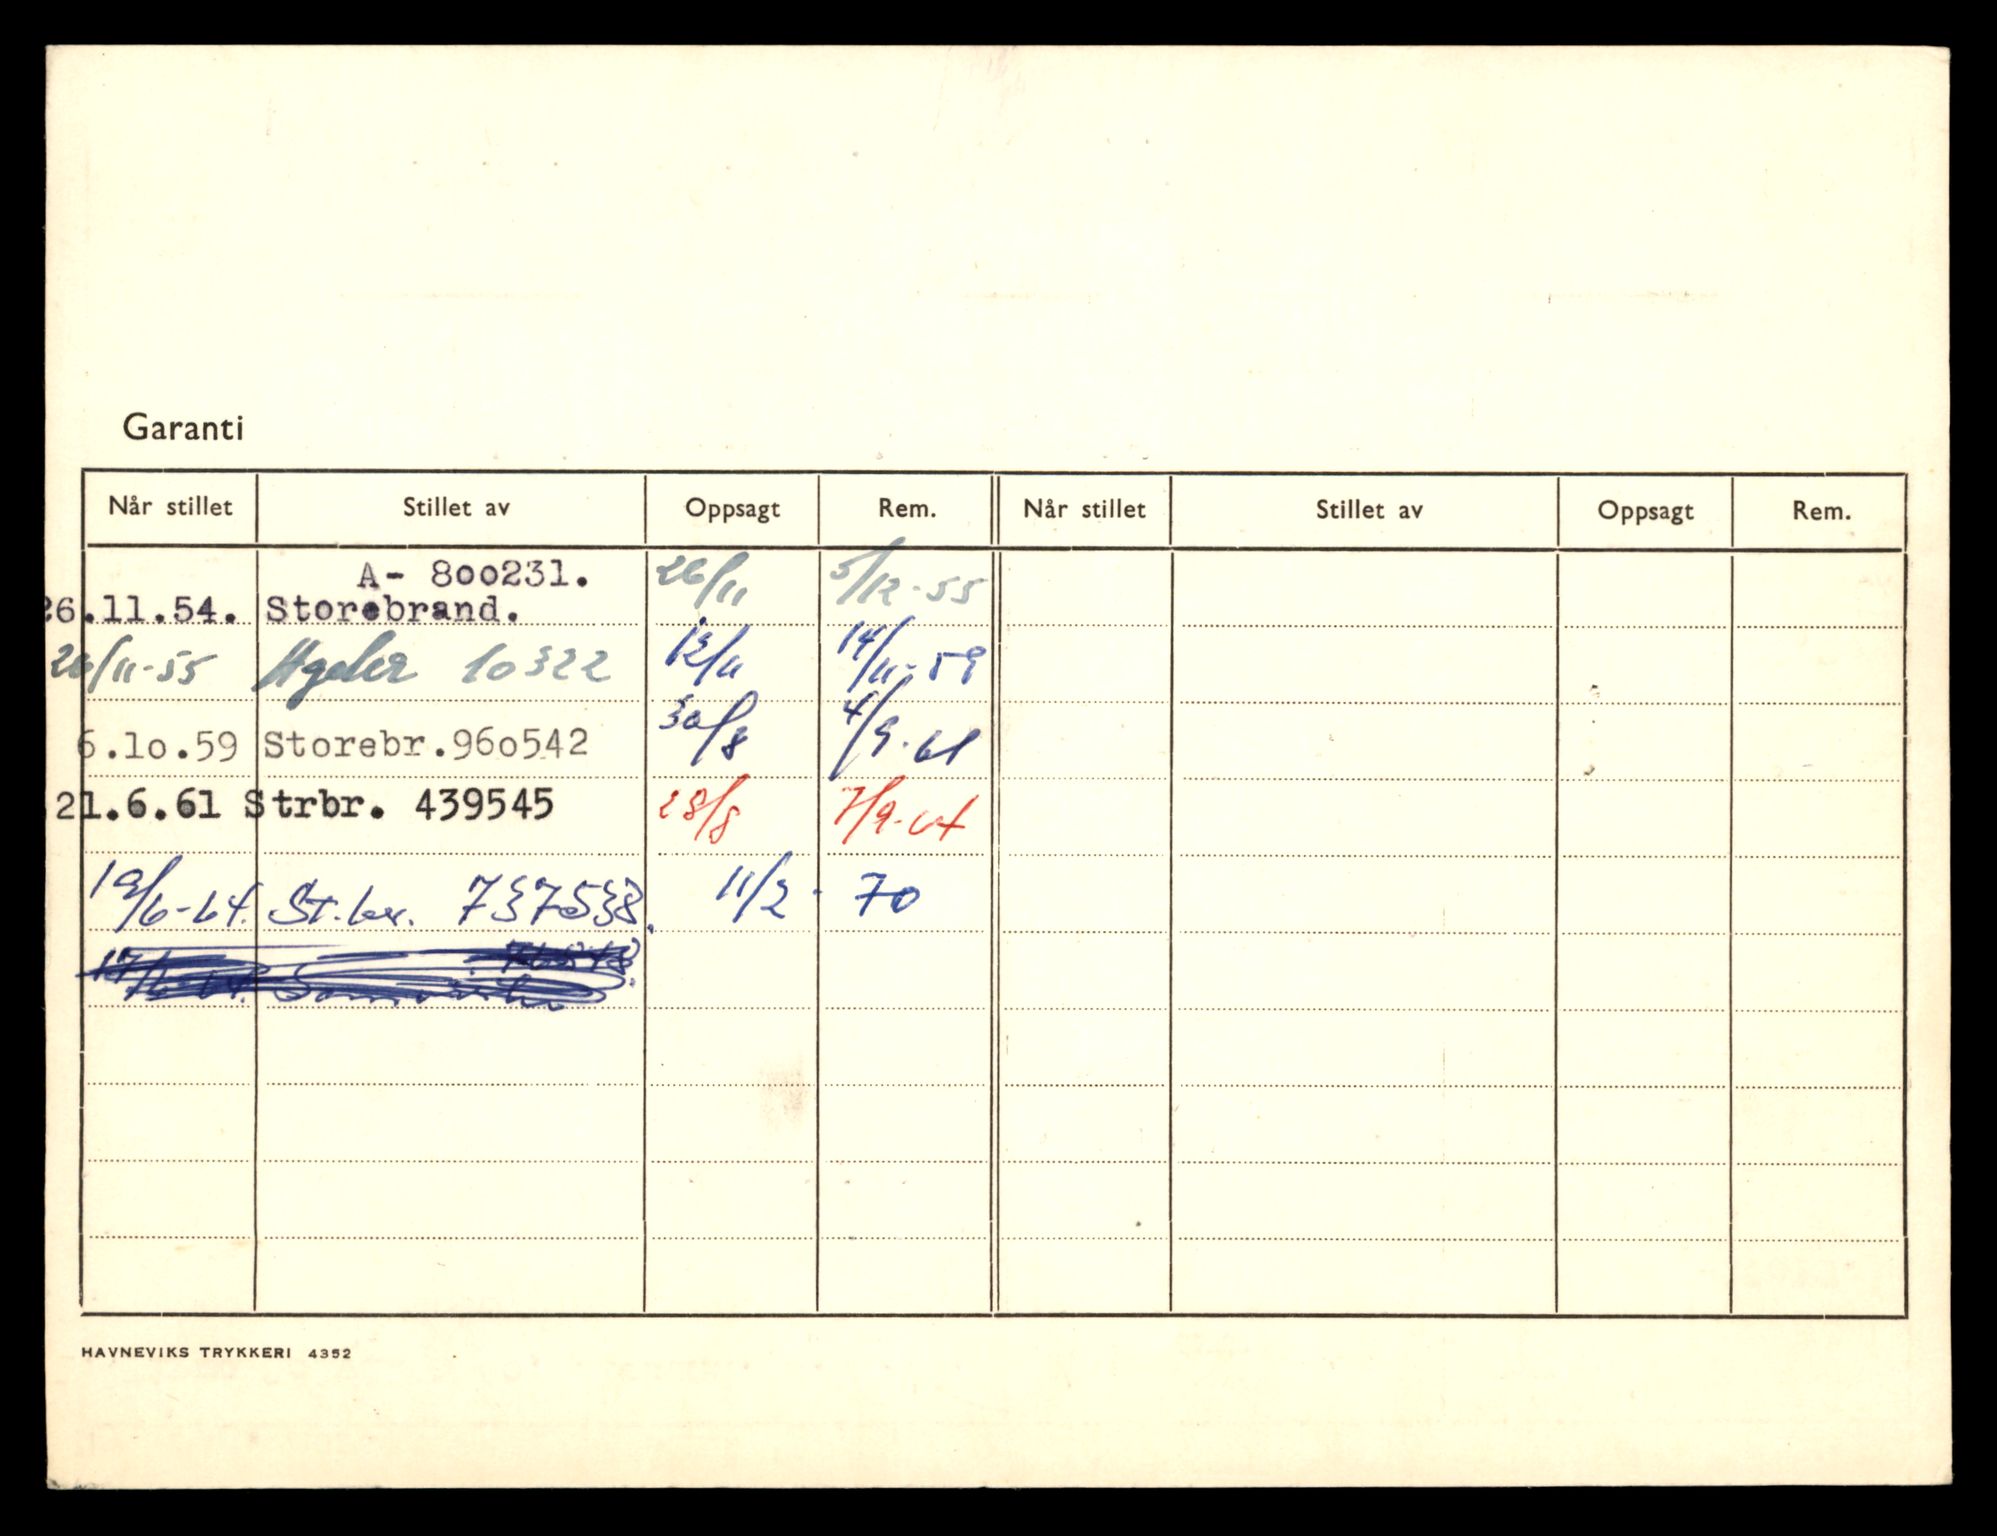 Garanti
Når stillet Stillet av Oppsagt Rem. Når stillet Stillet av Oppsagt Rem.
A- 800231. 26/11 5/12-55
26.11.54. Storebrand.
26/11-55 10322 12/11 14/11-59
6.10.59 Storebr.960542 30/8 4/9-61
21.6.61 Strbr. 439545 28/8 7/9-64
19/6-64. St.br. 737538. 11/2 - 70
17/6-64.
HAVNEVIKS TRYKKERI 4352